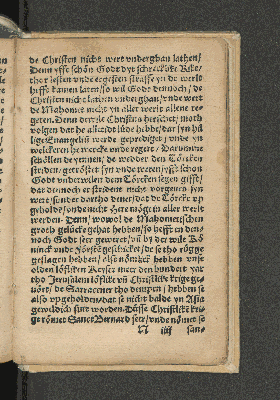 de Christen nicht wert vndergban lathen/
Denn yfft schön Godt dyt schrecklike Ryke/
ther lesten vnde ergesten straffe yn de werlt
hefft kamen laten/so wil Godt dennoch/ de
Christen nicht lathen vndergban/ vnde wert
de Mahomet nicht yn aller werlt allene re-
geren. Denn dar de Christus herschet/ moth
volgen dat he alletidt lüde hebbe/ dar syn hil-
lige Euangelij werde geprediget/ vnde yn
welckeren he wercke vnde regere/ Darumme
schöllen de yennen/ de wedder den Törcken
striden/ getröstet syn vnde weten/ yfft schon
Godt vnderwilen dem Törcken segen gifft/
dat dennoch er strident nicht vorgeuen syn
wert/ sunder dartho denet/ dat de Törcke vp
geholden/ vnde nicht Here möge in aller werlt
werden. Denn/ wowol de Mahometischen
groth gelücke gehat hebben/ so hefft en den-
noch Godt seer geweret/ wo by der wile Kö-
ninck vnde Förste geschicket/ de se tho rügge
geslagen hebben/ also nömlick hebben vnse
olden löffliken Keyser meer den hundert yar
tho Jerusalem löfflick vn Christlick krige ge-
uört/ de Sarracener tho dempen/ hebben se
also vpgeholden/ dat se nicht balde yn Asia
geweldich sint worden. Düsse Christlick kri-
ge römet Sanct Bernard seer/ vnde nömet se
N iiij san-